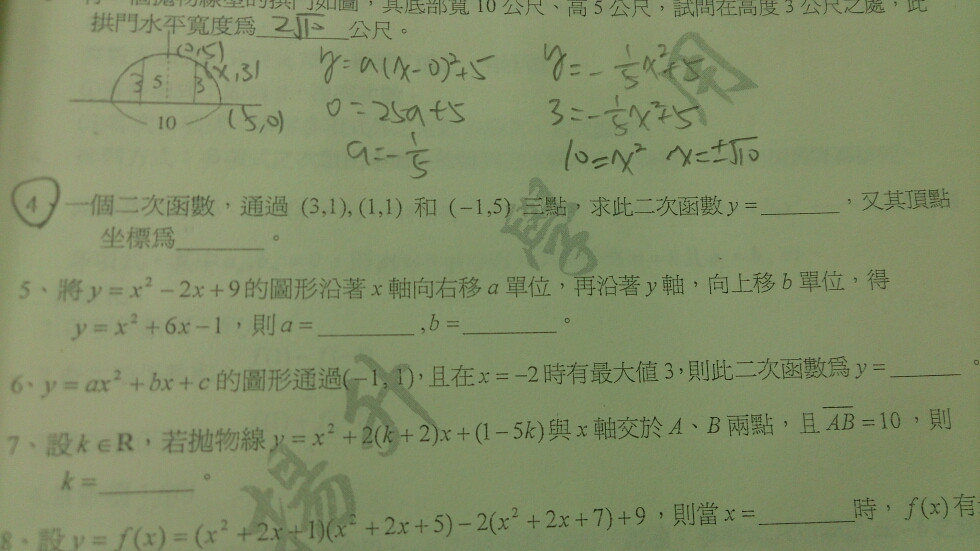 一個拋物線型的拱門如圖,其底部寬 10 公尺、高 5 公尺,試問在高度 3 公尺之處,此
拱門水平寬度為 2√10 公尺。
(0,5)
(x,3)
3 5 3
10
(5,0)
y=a(x-0)²+5
0=25a+5
a=-1/5
y=-1/5x²+5
3=-1/5x²+5
10=x² x=±√10
4、一個二次函數,通過 (3,1), (1,1) 和 (−1,5) 三點,求此二次函數 y =______,又其頂點
坐標為______。
5、將 y = x² − 2x + 9 的圖形沿著 x 軸向右移 a 單位,再沿著 y 軸,向上移 b 單位,得
y = x² + 6x − 1,則 a =______, b =______。
6、y = ax² + bx + c 的圖形通過(−1, 1),且在 x = −2 時有最大值 3,則此二次函數為 y =______。
7、設 k ∈ R,若拋物線 y = x² + 2(k + 2)x + (1 − 5k) 與 x 軸交於 A、B 兩點,且 AB = 10,則
k =______。
8、設 y = f(x) = (x² + 2x + 1)(x² + 2x + 5) − 2(x² + 2x + 7) + 9,則當 x =______時,f(x) 有